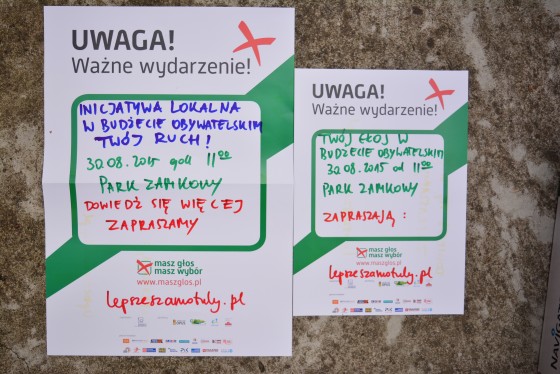 UWAGA!
Ważne wydarzenie!
INICJATYWA LOKALNA
W BUDŻECIE OBYWATELSKIM
TWÓJ RUCH!
30.08.2015 godz 11⁰⁰
PARK ZAMKOWY
DOWIEDZ SIĘ WIĘCEJ
ZAPRASZAMY
masz głos
masz wybór
www.maszglos.pl
lepszeszamotuly.pl
UWAGA!
Ważne wydarzenie!
TWÓJ GŁOS W
BUDŻECIE OBYWATELSKIM
30.08.2015 od 11⁰⁰
PARK ZAMKOWY
ZAPRASZAJĄ:
masz głos
masz wybór
www.maszglos.pl
lepszeszamotuly.pl